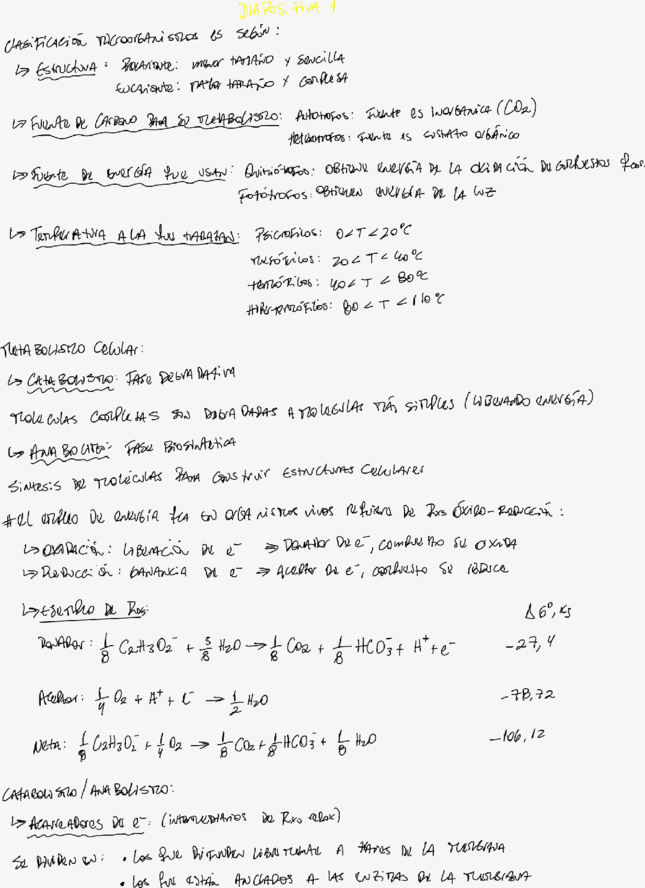 DIAPOSITIVA 1
CLASIFICACIÓN MICROORGANISMOS ES SEGÚN:
↳ ESTRUCTURA: PROCARIONTE: MENOR TAMAÑO Y SENCILLA
EUCARIONTE: MAYOR TAMAÑO Y COMPLEJA
↳ FUENTE DE CARBONO PARA SU METABOLISMO: AUTÓTROFOS: FUENTE ES INORGÁNICA (CO2)
HETERÓTROFOS: FUENTE ES SUSTRATO ORGÁNICO
↳ FUENTE DE ENERGÍA QUE USAN: QUIMIÓTROFOS: OBTIENE ENERGÍA DE LA OXIDACIÓN DE COMPUESTOS
FOTÓTROFOS: OBTIENEN ENERGÍA DE LA LUZ
↳ TEMPERATURA A LA QUE TRABAJAN: PSICRÓFILOS: 0 < T < 20°C
MESÓFILOS: 20 < T < 40°C
TERMÓFILOS: 40 < T < 80°C
HIPERTERMÓFILOS: 80 < T < 110°C
METABOLISMO CELULAR:
↳ CATABOLISMO: FASE DEGRADATIVA
MOLÉCULAS COMPLEJAS SON DEGRADADAS A MOLÉCULAS MÁS SIMPLES (LIBERANDO ENERGÍA)
↳ ANABOLISMO: FASE BIOSINTÉTICA
SÍNTESIS DE MOLÉCULAS PARA CONSTRUIR ESTRUCTURAS CELULARES
# EL EMPLEO DE ENERGÍA QCA EN ORGANISMOS VIVOS REQUIERE DE RXS ÓXIDO-REDUCCIÓN:
↳ OXIDACIÓN: LIBERACIÓN DE e⁻ ⇒ DONADOR DE e⁻, COMPUESTO SE OXIDA
↳ REDUCCIÓN: GANANCIA DE e⁻ ⇒ ACEPTOR DE e⁻, COMPUESTO SE REDUCE
↳ EJEMPLO DE RXS: ΔG°, KJ
DONADOR: 1/8 C2H3O2⁻ + 3/8 H2O → 1/8 CO2 + 1/8 HCO3⁻ + H⁺ + e⁻ -27,4
ACEPTOR: 1/4 O2 + H⁺ + e⁻ → 1/2 H2O -78,72
NETA: 1/8 C2H3O2⁻ + 1/4 O2 → 1/8 CO2 + 1/8 HCO3⁻ + 1/8 H2O -106,12
CATABOLISMO/ANABOLISMO:
↳ ACARREADORES DE e⁻: (INTERMEDIARIOS DE RXS REDOX)
SE DIVIDEN EN: • LOS QUE DIFUNDEN LIBREMENTE A TRAVÉS DE LA MEMBRANA
• LOS QUE ESTÁN ANCLADOS A LAS ENZIMAS DE LA MEMBRANA